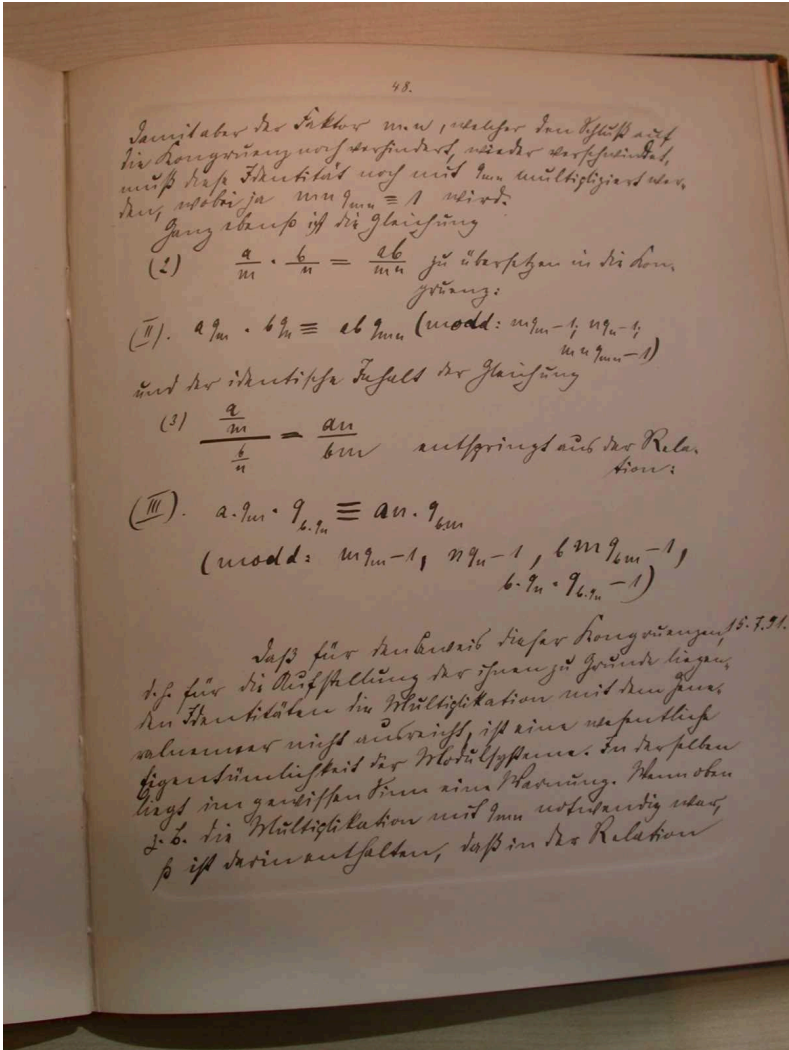 48.
Damit aber der Faktor m·n, welcher den Schluß auf
die Kongruenz noch verhindert, wieder verschwindet,
muß diese Identität noch mit q_{mn} multipliziert wer-
den, wobei ja mn q_{mn} ≡ 1 wird.
Ganz ebenso ist die Gleichung
(2) a/m · b/n = ab/mn zu übersetzen in die Kon-
gruenz:
(II). a q_m · b q_n ≡ ab q_{mn} (modd: m q_m − 1; n q_n − 1;
mn q_{mn} − 1)
und der identische Inhalt der Gleichung
(3) (a/m)/(b/n) = an/bm entspringt aus der Rela-
tion:
(III). a · q_m · q_{b·q_n} ≡ an · q_{bm}
(modd: m q_m − 1, n q_n − 1, b m q_{bm} − 1,
b · q_n · q_{b·q_n} − 1)
Daß für den Beweis dieser Kongruenzen, 15.7.91.
d.h. für die Aufstellung der ihnen zu Grunde liegen-
den Identitäten die Multiplikation mit dem Gene-
ralnenner nicht ausreicht, ist eine wesentliche
Eigentümlichkeit der Modulsysteme. In derselben
liegt im gewissen Sinn eine Warnung. Wenn oben
z. B. die Multiplikation mit q_{mn} notwendig war,
so ist darin enthalten, daß in der Relation